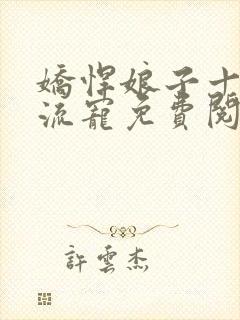 嬌悍娘子十
流寵免費閱
許雲杰